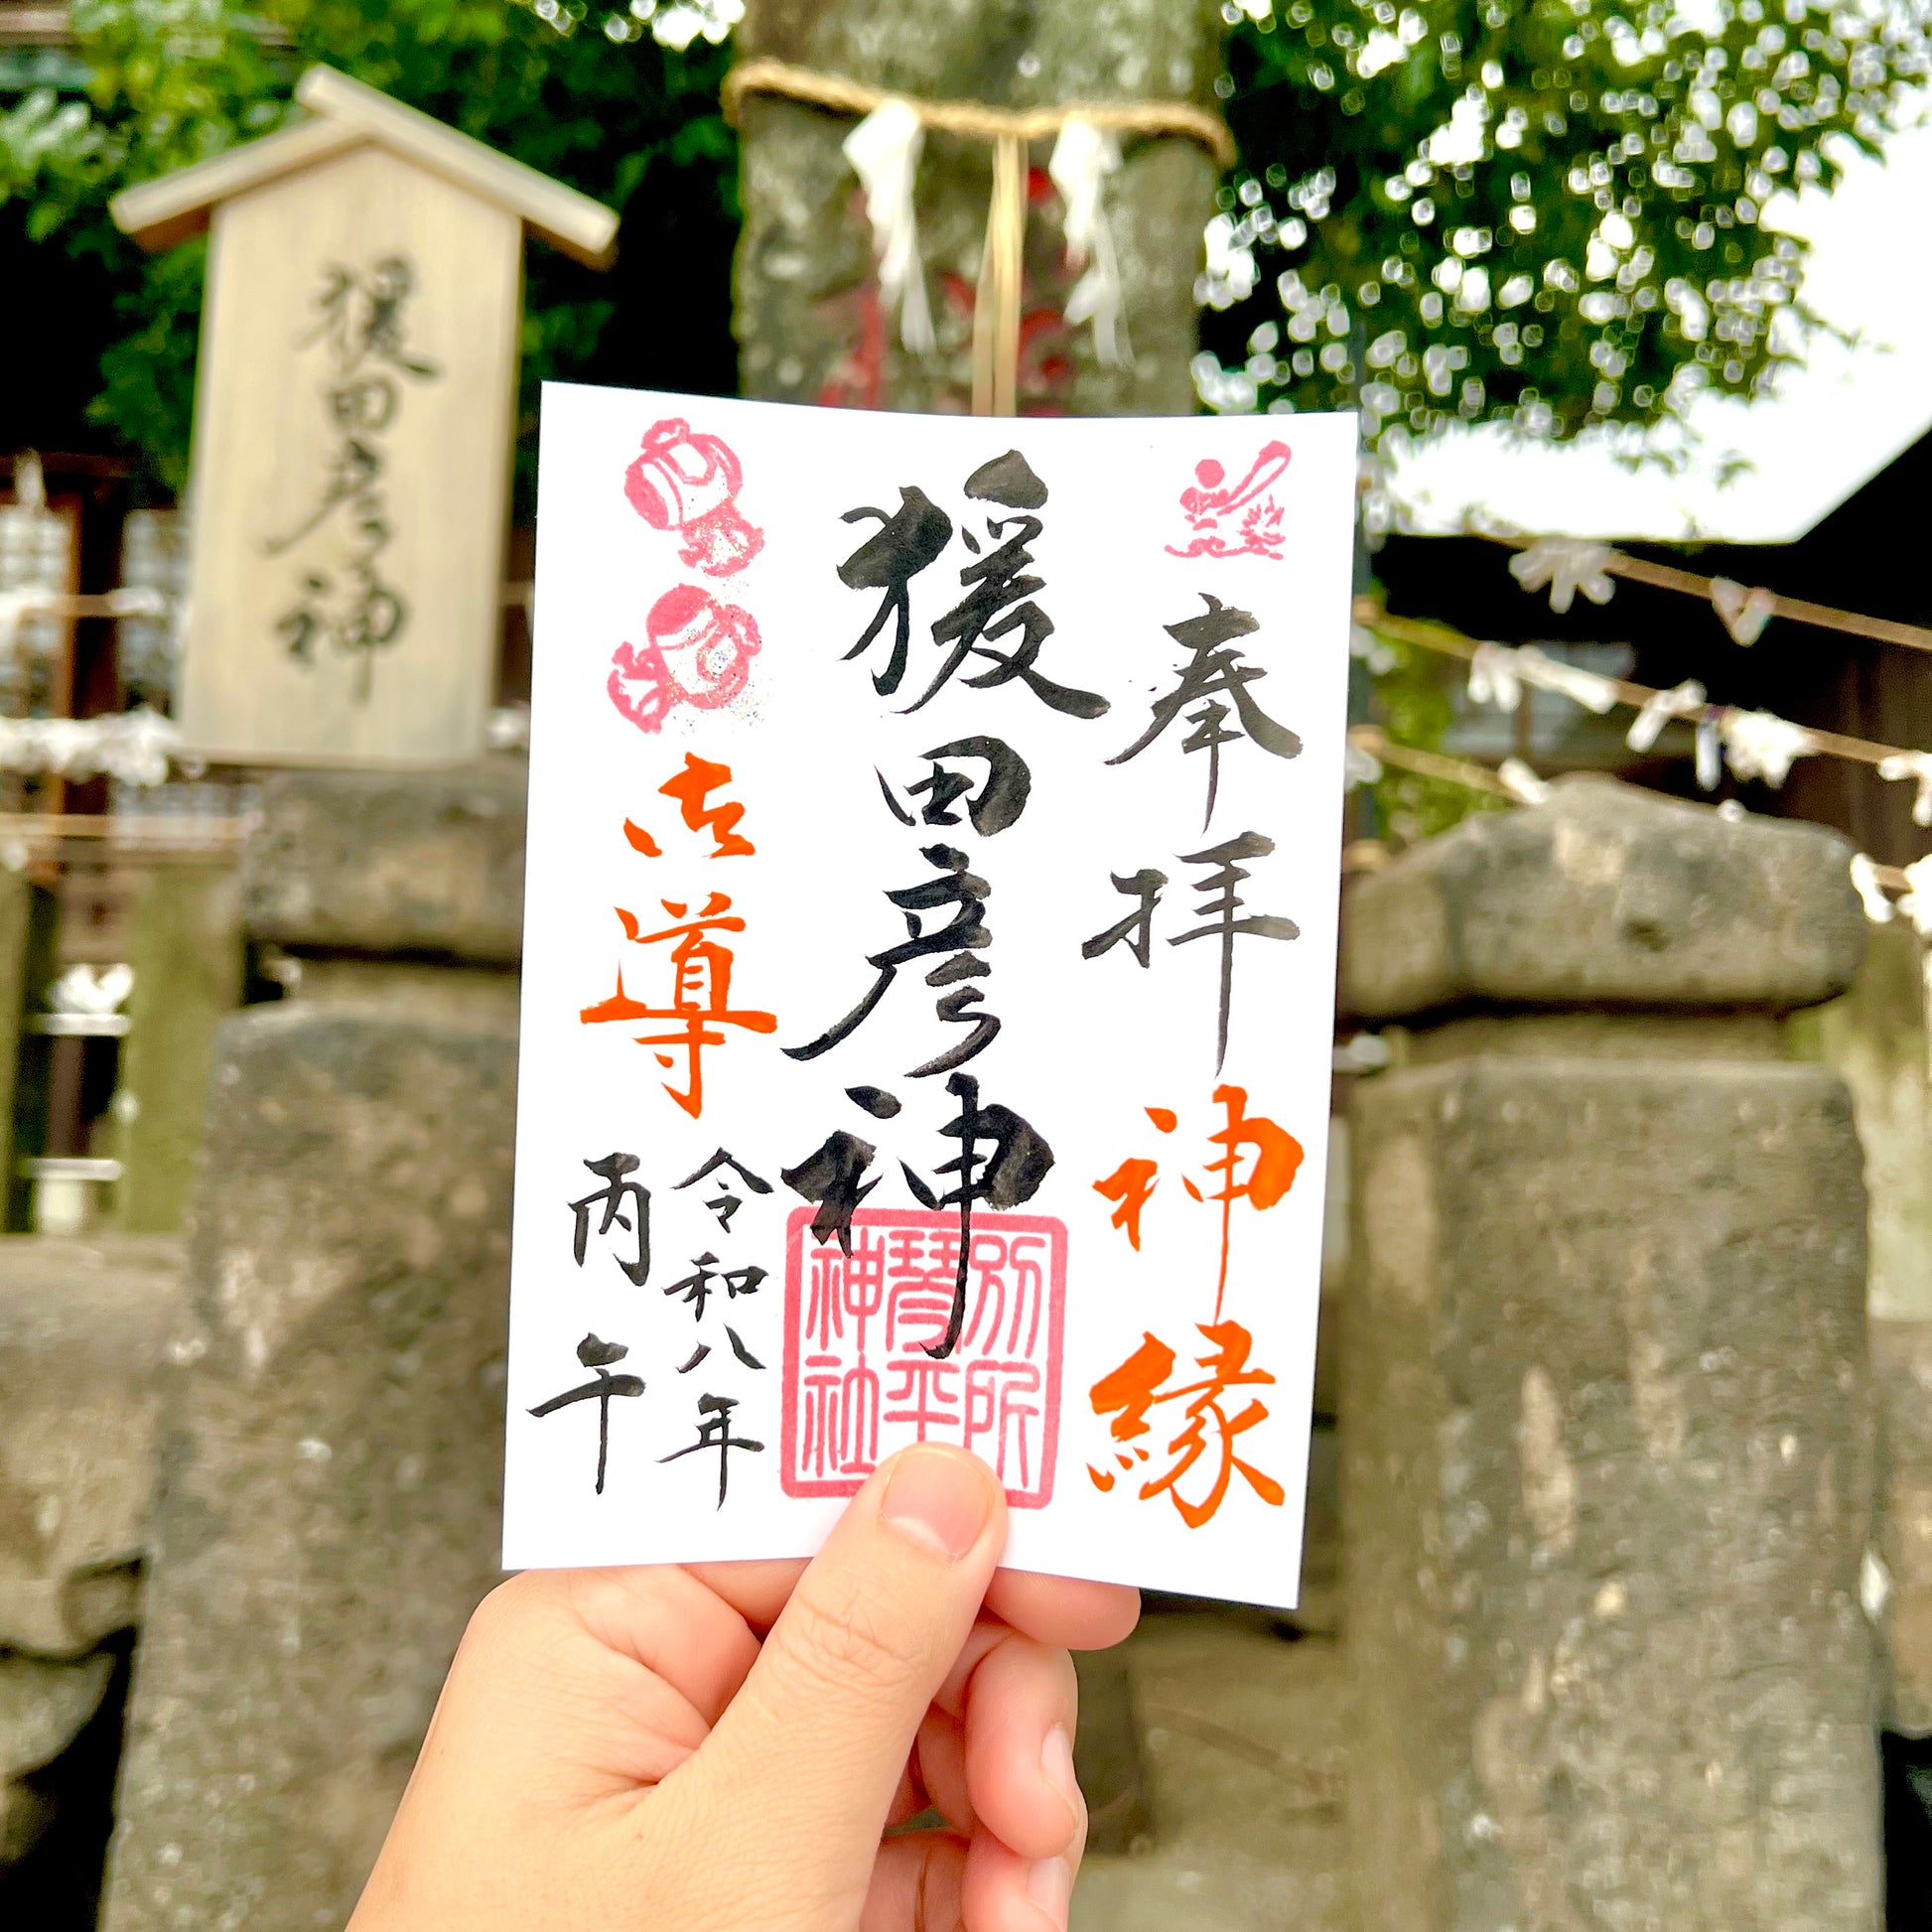 奉拝 神縁
猨田彦神
別所
琴平
神社
御導
令和八年
丙午
猨田彦神